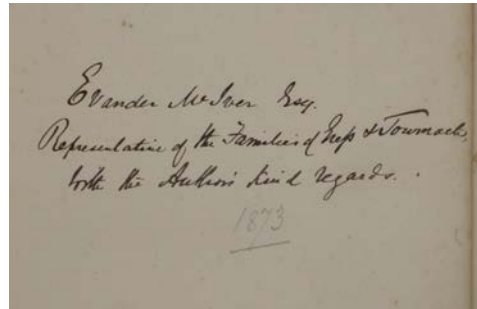 Evander McIver Esq.
Representative of the Families of Gress & Tournaik,
With the Author's kind regards.
1873